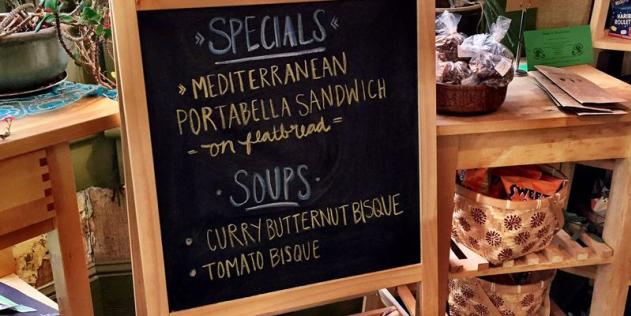 » SPECIALS «
» MEDITERRANEAN
PORTABELLA SANDWICH
= on featbread =
• SOUPS •
• CURRY BUTTERNUT BISQUE
• TOMATO BISQUE
HARIBO
ROULET
SWEET